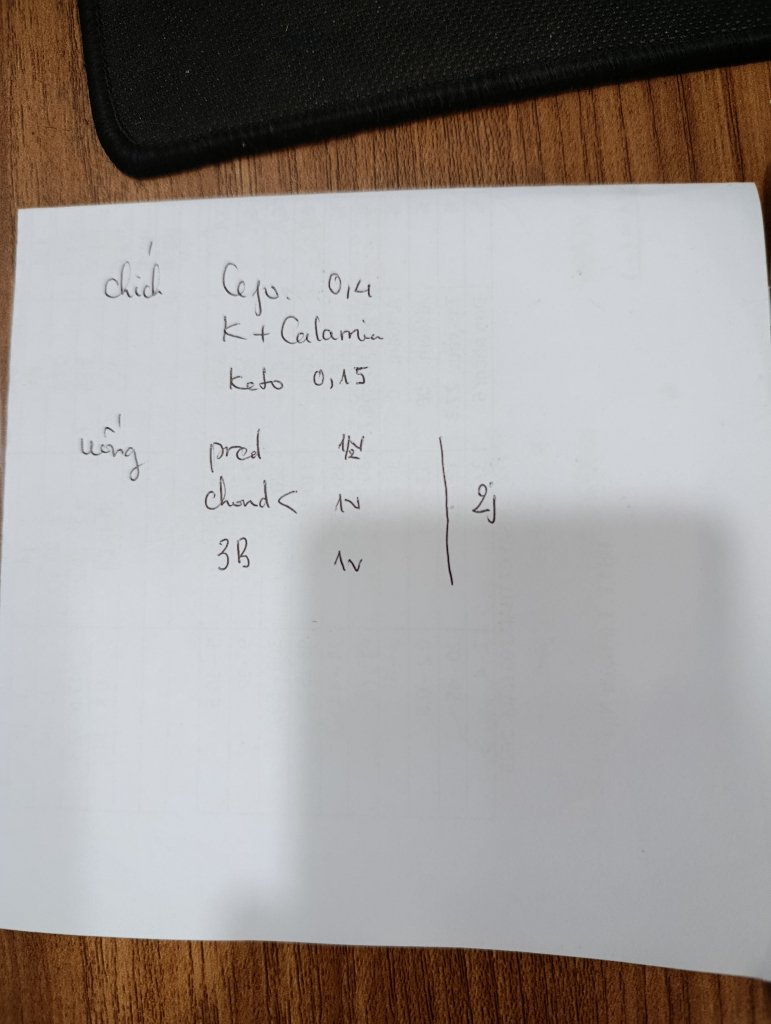 chích Cefo. 0,4
K + Calamin
Keto 0,15
uống pred 1/2v
chond < 1v
3B 1v
2j